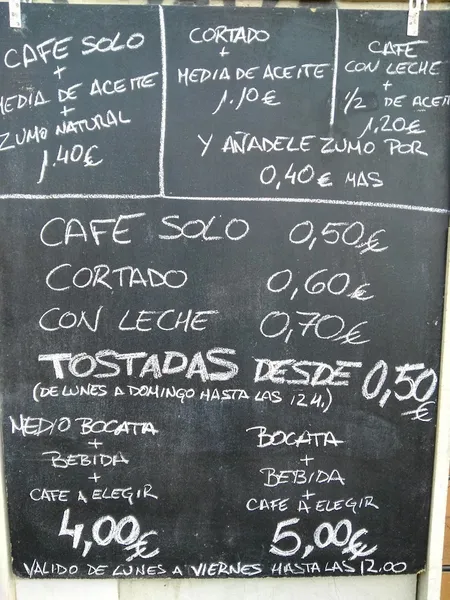 CAFE SOLO
+
MEDIA DE ACEITE
+
ZUMO NATURAL
1.40€
CORTADO
+
MEDIA DE ACEITE
1.10€
CAFE
CON LECHE
+
1/2 DE ACEIT
1.20€
Y AÑADELE ZUMO POR
0,40€ MAS
CAFE SOLO 0,50€
CORTADO 0,60€
CON LECHE 0,70€
TOSTADAS DESDE 0,50€
(DE LUNES A DOMINGO HASTA LAS 12H.)
MEDIO BOCATA
+
BEBIDA
+
CAFE A ELEGIR
4,00€
BOCATA
+
BEBIDA
+
CAFE A ELEGIR
5,00€
VALIDO DE LUNES A VIERNES HASTA LAS 12.00